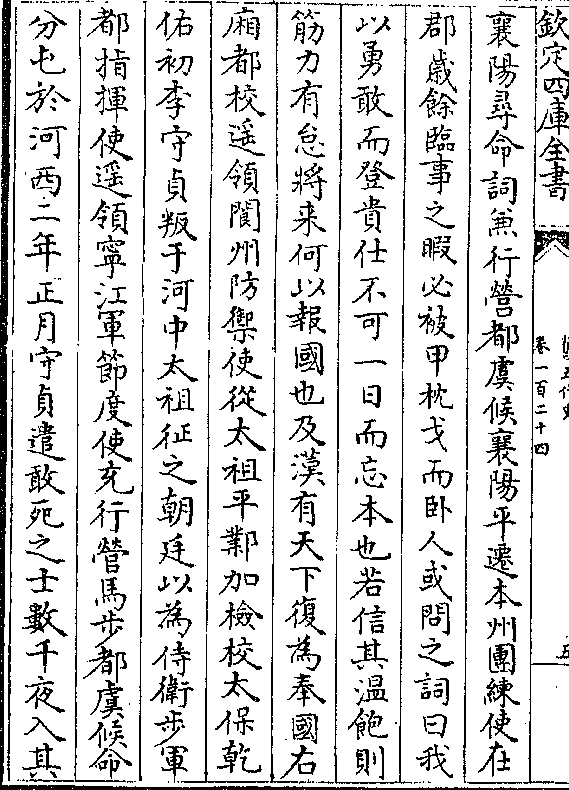 欽定四庫全書
卷一百二十四
襄陽尋命詞兼行營都虞候襄陽平遷本州團練使在
郡歲餘臨事之暇必被甲枕戈而卧人或問之詞曰我
以勇敢而登貴仕不可一日而忘本也若信其温飽則
筋力有怠將来何以報國也及漢有天下復為奉國右
廂都校遥領閬州防禦使從太祖平鄴加檢校太保乾
佑初李守貞叛于河中太祖征之朝廷以為侍衛步軍
都指揮使遥領寧江軍節度使充行營馬步都虞候命
分屯於河西二年正月守貞遣敢死之士數千夜入其